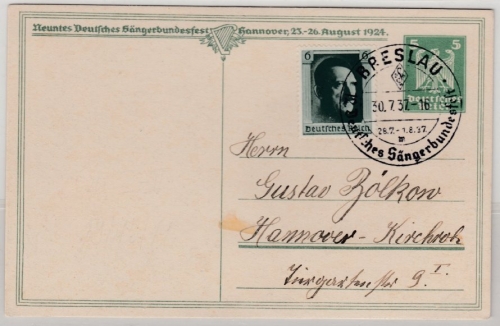 Neuntes Deutsches Sängerbundesfest Hannover, 23.-26. August 1924.
6
5
Deutsches Reich
BRESLAU
30.7.37.-16
28.7.-1.8.37.
m
Deutsches Sängerbundesfest
Herrn
Gustav Zölkow
Hannover-Kirchrode
9 I.